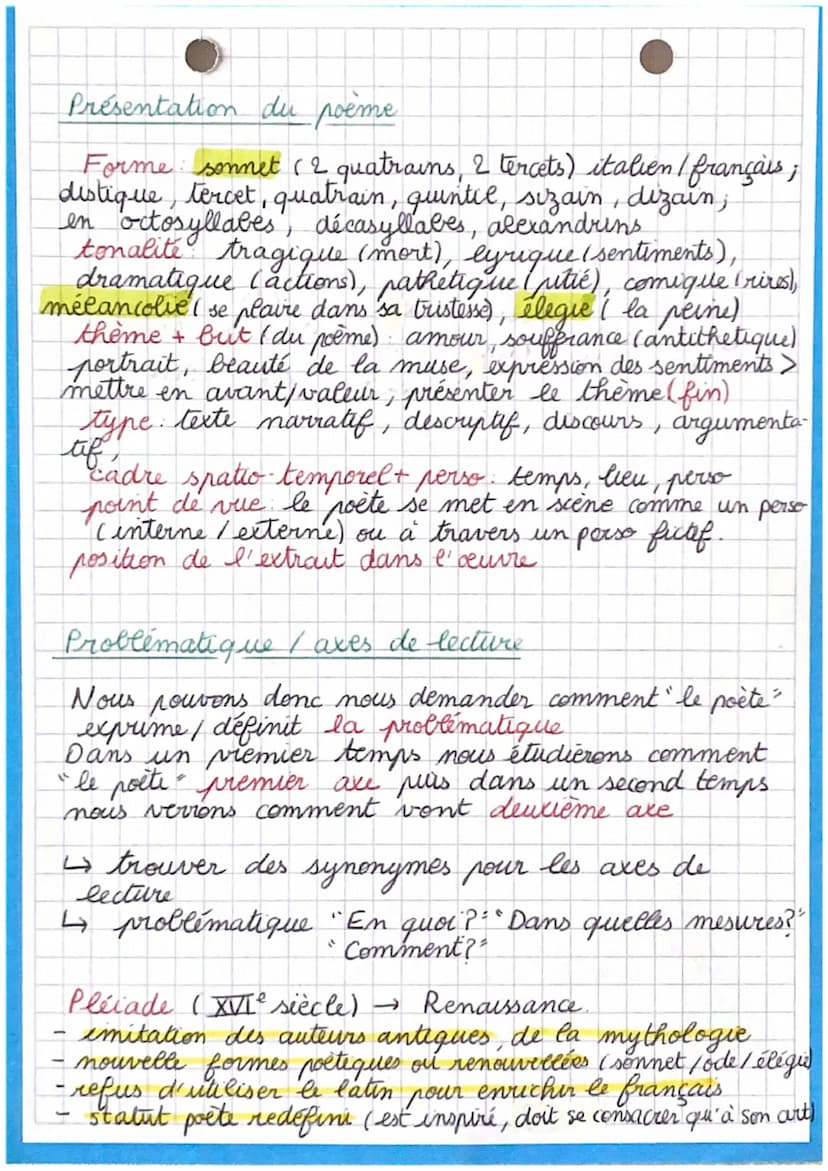 Présentation du poème
Forme : sonnet (2 quatrains, 2 tercets) italien/français;
distique, tercet, quatrain, quintil, sizain, dizain;
en octosyllabes, décasyllabes, alexandrins
tonalité : tragique (mort), lyrique (sentiments),
dramatique (actions), pathétique (pitié), comique (rires),
mélancolie (se plaire dans sa tristesse), élegie (la peine)
thème + but (du poème) : amour, souffrance (antithétique)
portrait, beauté de la muse, expression des sentiments >
mettre en avant/valeur, présenter le thème (fin)
type : texte narratif, descriptif, discours, argumenta-
tif,
cadre spatio-temporel + perso : temps, lieu, perso
point de vue : le poète se met en scène comme un perso
(interne/externe) ou à travers un perso fictif.
position de l'extrait dans l'œuvre
Problématique / axes de lecture
Nous pouvons donc nous demander comment "le poète"
exprime/définit la problématique
Dans un premier temps nous étudierons comment
"le poète" premier axe puis dans un second temps
nous verrons comment vont deuxième axe
↳ trouver des synonymes pour les axes de
lecture
↳ problématique "En quoi?" "Dans quelles mesures?"
"Comment?"
Pléiade (XVIe siècle) → Renaissance.
- imitation des auteurs antiques, de la mythologie
- nouvelle formes poétiques ou renouvellées (sonnet/ode/élégie)
- refus d'utiliser le latin pour enrichir le français
- statut poète redéfini (est inspiré, doit se consacrer qu'à son art)